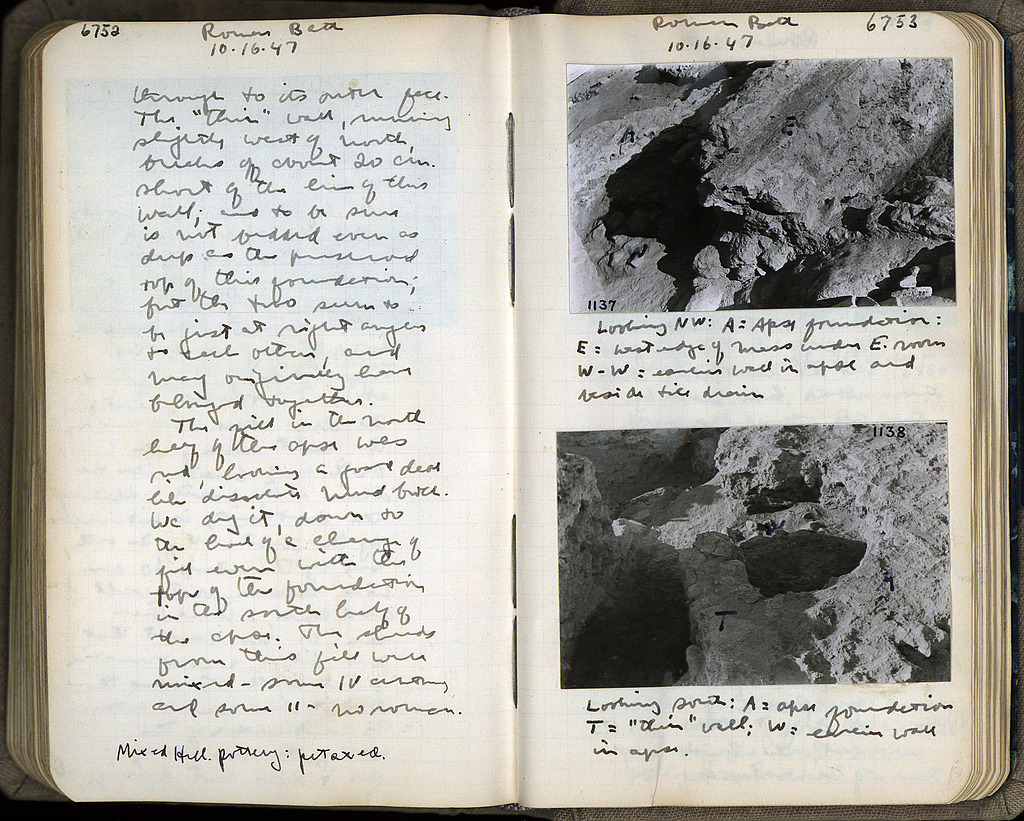 6752
Roman Bath
10.16.47
through to its outer face.
The "thin" wall, running
slightly west of north,
breaks off about 20 cm.
short of the line of this
wall; and to be sure
is not bedded even as
deep as the preserved
top of this foundation;
but the two seem to
be just at right angles
to each other, and
may originally have
belonged together.
The fill in the north
half of the apse was
red, looking a good deal
like dissolved mud brick.
We dug it, down to
the level of a change of
fill even with the
top of the foundation
in the south half of
the apse. The sherds
from this fill were
mixed - some IV century
and some II - no roman.
Mixed Hell. pottery: petaxed.
6753
Roman Bath
10.16.47
A
E
1137
Looking NW: A = Apse foundation:
E = west edge of mass under E. room
W-W = earlier wall in apse and
beside tile drain
1138
W
A
T
Looking south: A = apse foundation
T = "thin" wall; W = earlier wall
in apse.